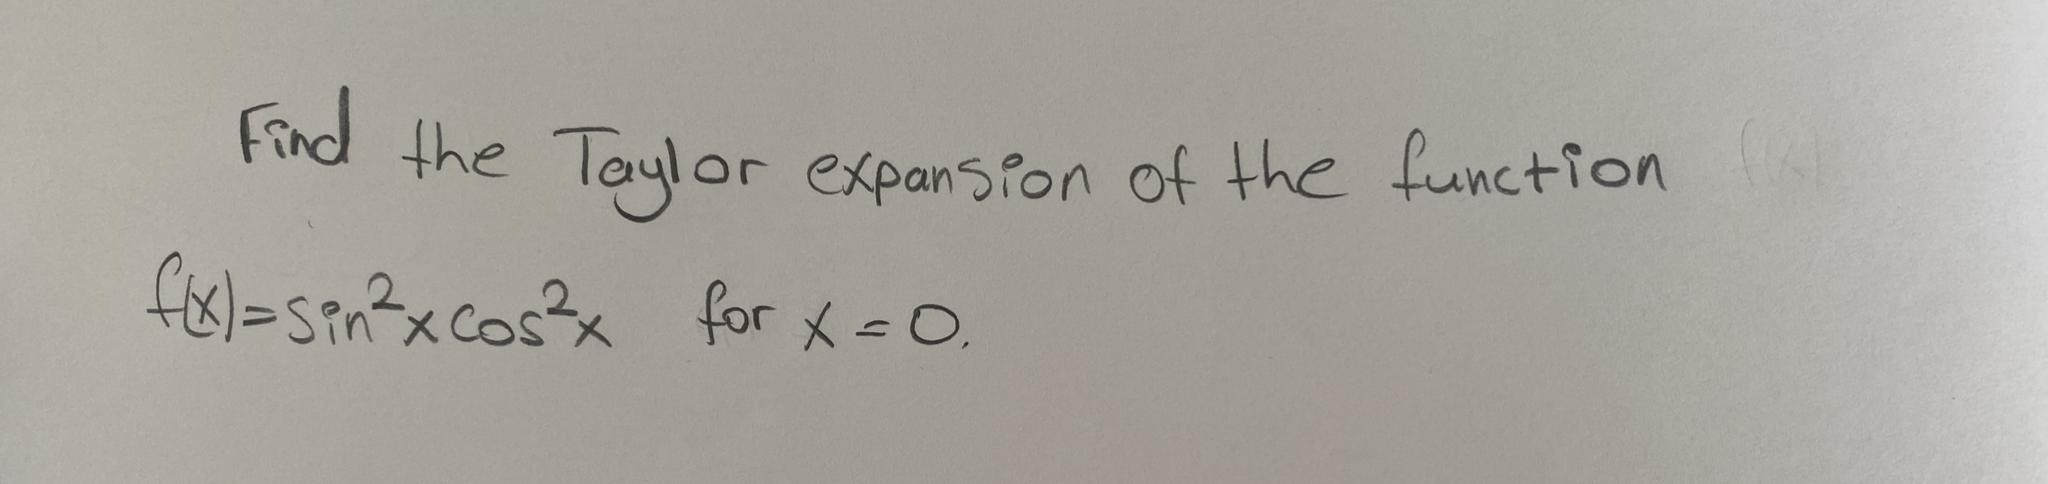 Find the Taylor expansion of the function f(x)
f(x)=sin²x cos²x for x=0.